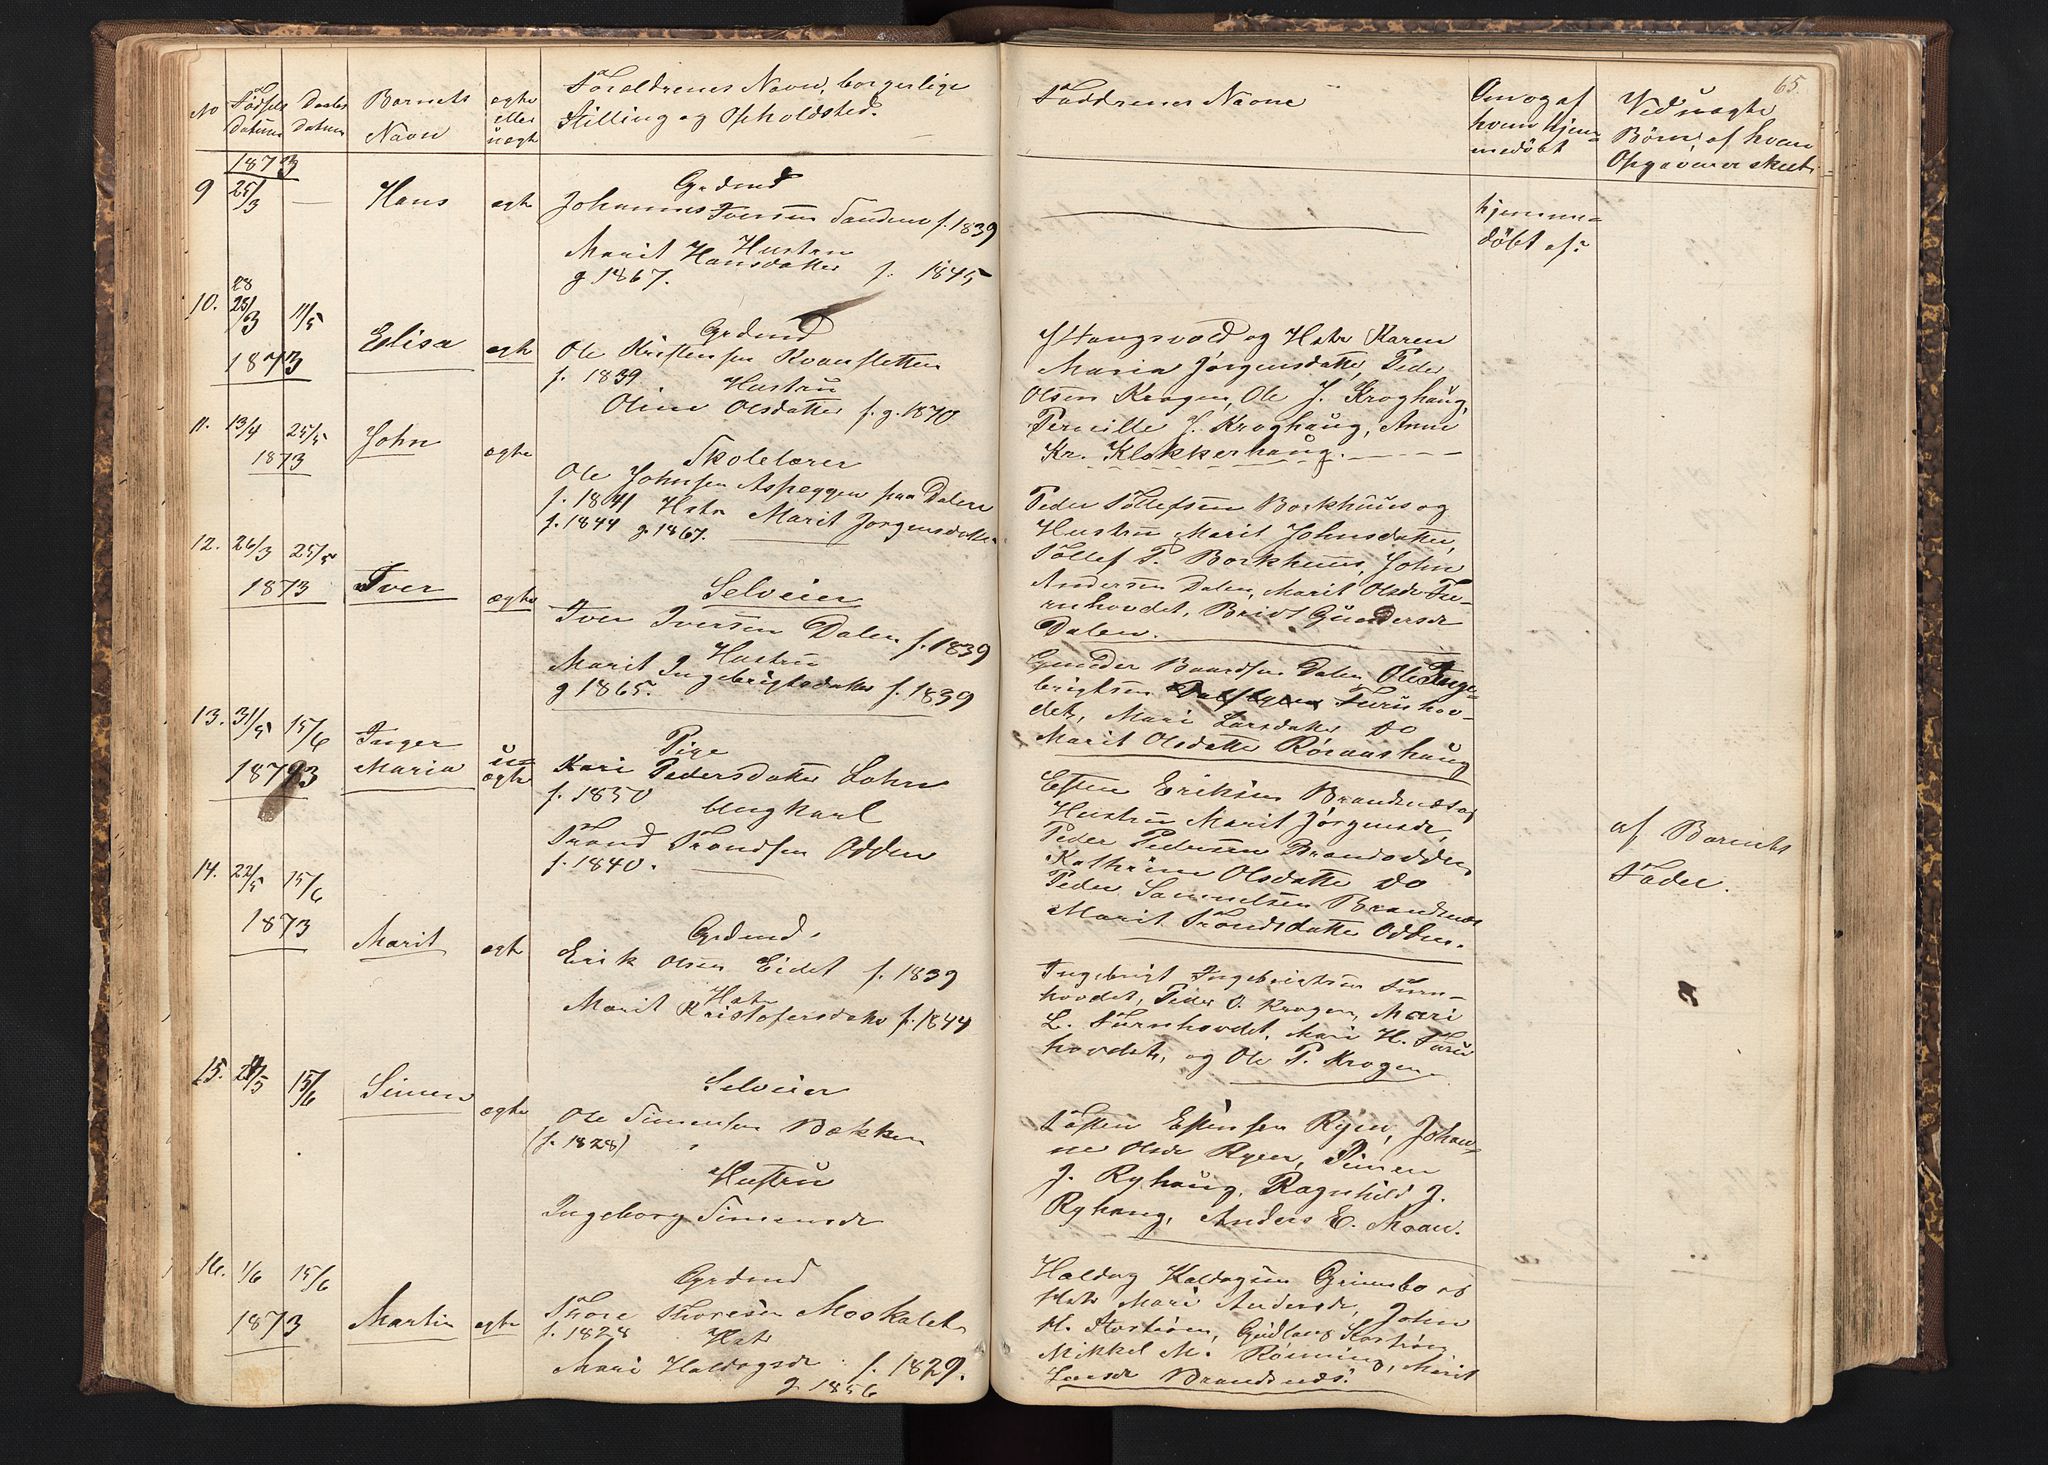 65.
No
Fødsels Datum
Daabs Datum
Barnets Navn
ægte eller uægte
Forældrenes Navn, borgerlige
Stilling og Opholdsted.
Faddrenes Navne
Om og af hvem hjemmedøbt
Ved uægte Børn, af hvem Opgaven er skeet
1873
9 25/3 — Hans ægte
Grdmd
Johannes Iversen Sanden f. 1839
Hustru
Marit Hansdatter f. 1845
g 1867.
hjemme-
døbt af?
28
10. 28/3 11/5
1873
Elisa ægte
Grdmd
Ole Kristensen Kvansletten
f. 1839. Hustru
Oline Olsdatter f. g. 1870
Haugsvold og Hstr Karen
Maria Jørgensdatter, Peder
Olsen Krogen, Ole J. Kroghaug,
Pernille J. Kroghaug, Anne
Kr. Klokkerhaug.
11. 13/4 25/5
1873
John ægte
Skolelærer
Ole Johnsen Aspeggen paa Dalen
f. 1841 Hstr Marit Jørgensdatter
f. 1844 g. 1867.
Peder Tollefsen Borkhuus og
Hustru Marit Johnsdatter,
Tollef P. Borkhuus, John
Andersen Dalen, Marit Olsdr Fu-
runhovdet, Brit Gundersdr
Dalen.
12. 26/3 25/5
1873
Iver ægte
Selveier
Iver Iversen Dalen f. 1839
Hustru
Marit Ingebrigtsdatter f. 1839
g 1865.
Gunder Baardsen Dalen, Ole Inge-
brigtsen Furuhov-
det, Mari Larsdatter Do
Marit Olsdatter Røraashaug
13. 31/5 15/6
1873
Inger
Maria
u-
ægte
Pige
Kari Pedersdatter Lohn
f. 1850 Ungkarl
Trond Trondsen Odden
f. 1840.
Esten Eriksen Brandnæs og
Hustru Marit Jørgensdr,
Peder Pedersen Brandodden
Kathrine Olsdatter Do
Peder Samuelsen Brandnæs
Marit Trondsdatter Odden.
af Barnets
Fader.
14. 22/5 15/6
1873
Marit ægte
Grdmd.
Erik Olsen Eidet f. 1839
Hstr
Marit Kristofersdatter f. 1844
Ingebrigt Ingebrigtsen Furu-
hovdet, Peder O. Krogen, Mari
L. Furuhovdet, Mari H. Furu
hovdet, og Ole P. Krogen
15. /5 15/6
Simen ægte
Selveier
Ole Simensen Bækken
(f. 1828)
Hustru
Ingeborg Simensdr
Esten Estensen Ryen, Johan-
ne Olsdr Ryen, Simen
J. Ryhaug, Ragnhild J.
Ryhaug, Anders E. Moan.
16. 1/6 15/6
1873
Martin ægte
Grdmd
Thore Thoresen Moskalet
f. 1828 Hstr
Mari Haldogsdr f. 1829.
g 1856
Haldog Haldogsen Grimsbo og
Hstr Mari Andersdr, John
H. Stostrøen, Gudlaug Stostrøen
Mikkel M. Rønning, Marit
Larsdr Brandsnæs.